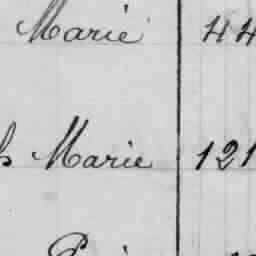 Marie 44
Marie 121